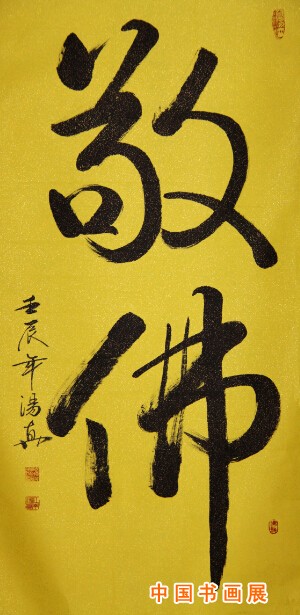 敬佛
壬辰年湯真
中国书画展